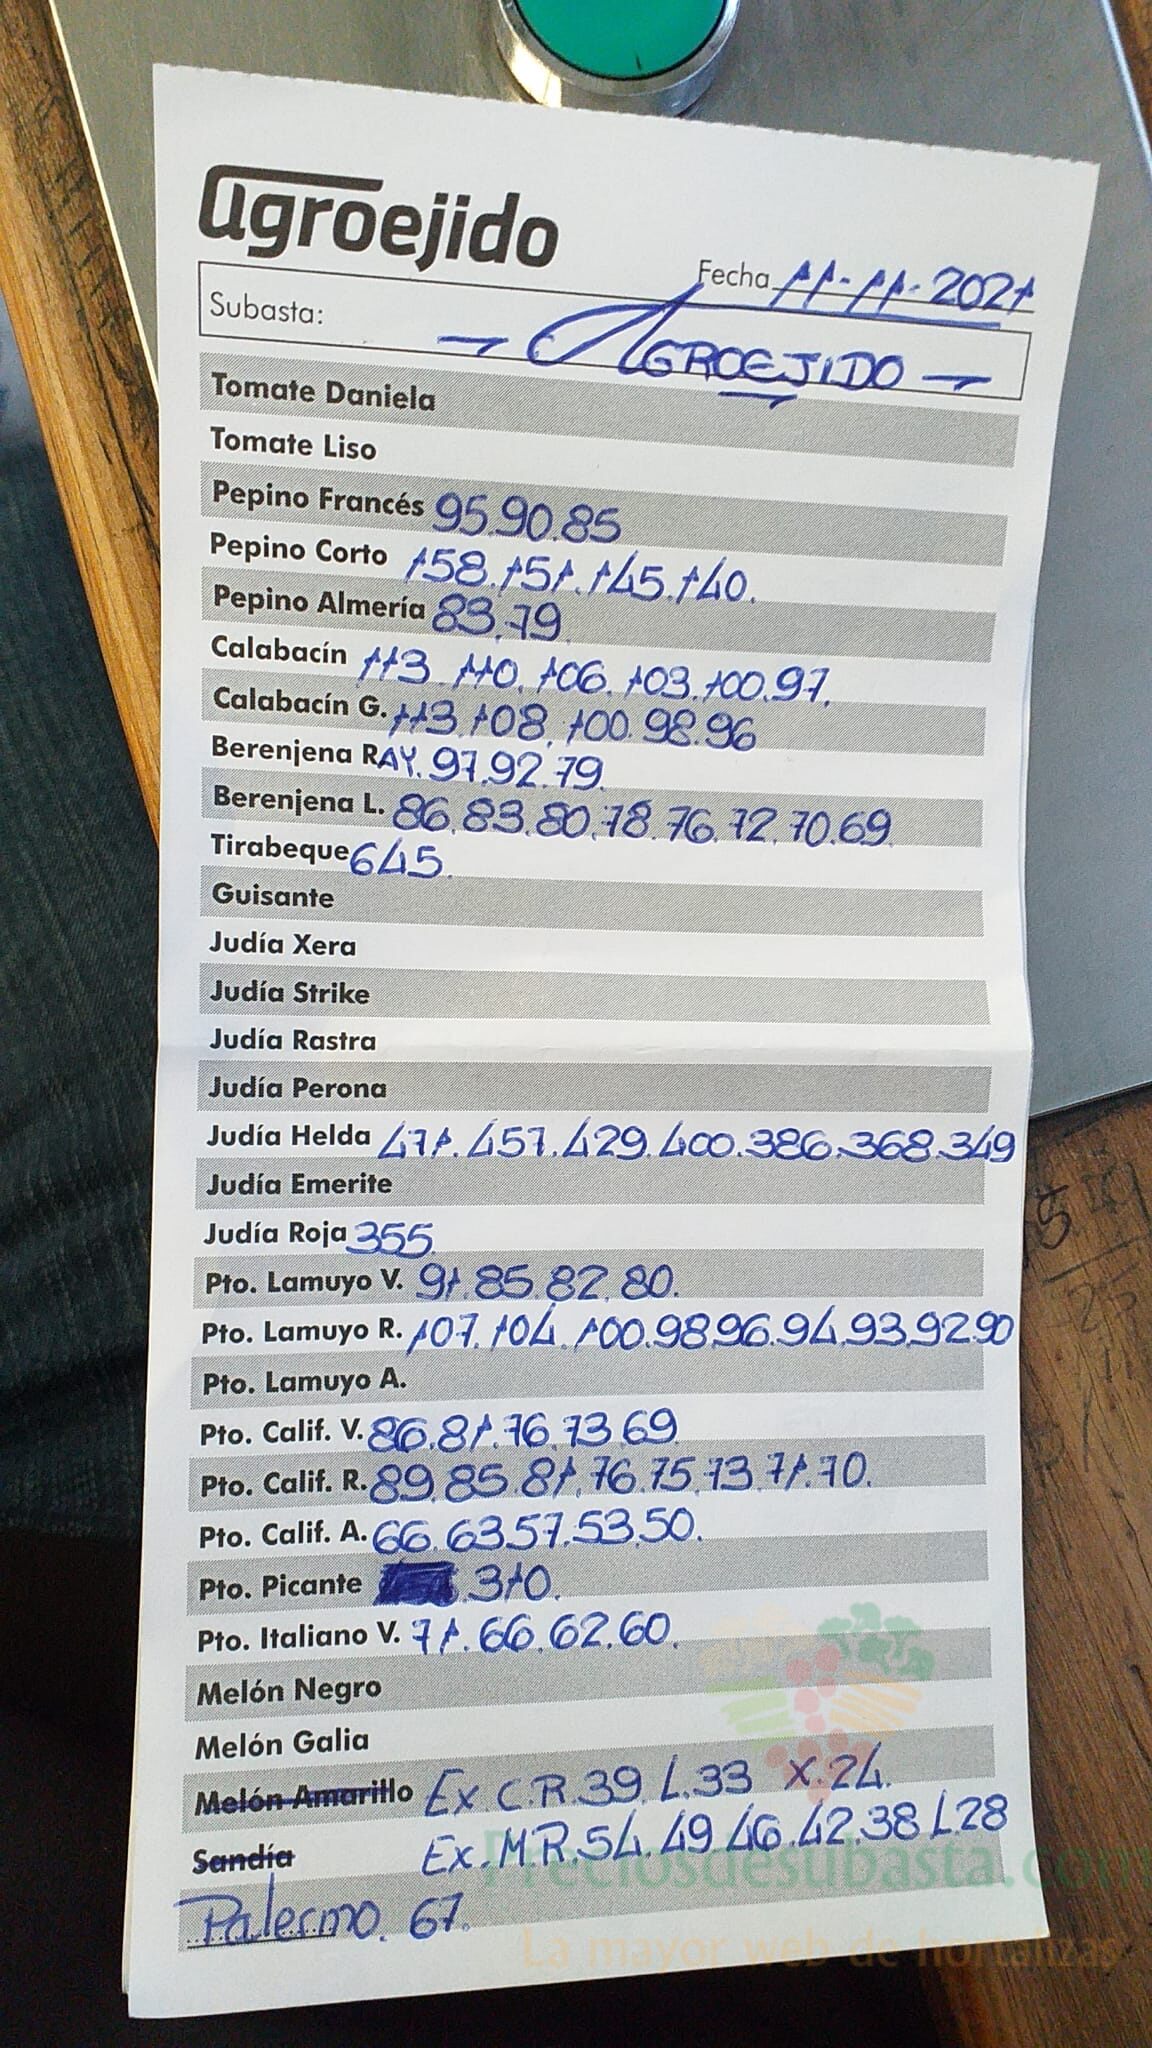 agroejido
Fecha 11-11-2021
Subasta: - AGROEJIDO -
Tomate Daniela
Tomate Liso
Pepino Francés 95.90.85
Pepino Corto 158.151.145.140.
Pepino Almería 83.79
Calabacín 113.110.106.103.100.97.
Calabacín G. 113.108.100.98.96
Berenjena RAY. 97.92.79.
Berenjena L. 86.83.80.78.76.72.70.69
Tirabeque 645.
Guisante
Judía Xera
Judía Strike
Judía Rastra
Judía Perona
Judía Helda 471.457.429.400.386.368.349
Judía Emerite
Judía Roja 355
Pto. Lamuyo V. 91.85.82.80.
Pto. Lamuyo R. 107.104.100.98.96.94.93.92.90
Pto. Lamuyo A.
Pto. Calif. V. 86.81.76.73.69
Pto. Calif. R. 89.85.81.76.75.73.71.70.
Pto. Calif. A. 66.63.57.53.50.
Pto. Picante .310.
Pto. Italiano V. 71.66.62.60.
Melón Negro
Melón Galia
Melón Amarillo Ex C.R.39. L.33 X.24.
Sandía Ex.M.R.54.49.46.42.38 L.28
Palermo. 67.
Preciosdesubasta.com
La mayor web de hortalizas